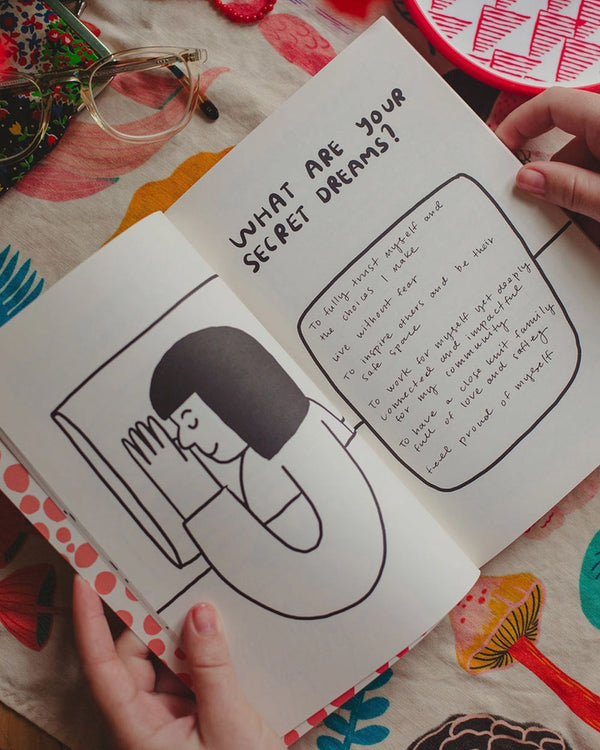 WHAT ARE YOUR
SECRET DREAMS?
To fully trust myself and
the choices I make
Live without fear
To inspire others and be their
safe space
To work for myself yet deeply
connected and impactful
for my community
To have a close knit family
full of love and safety
feel proud of myself